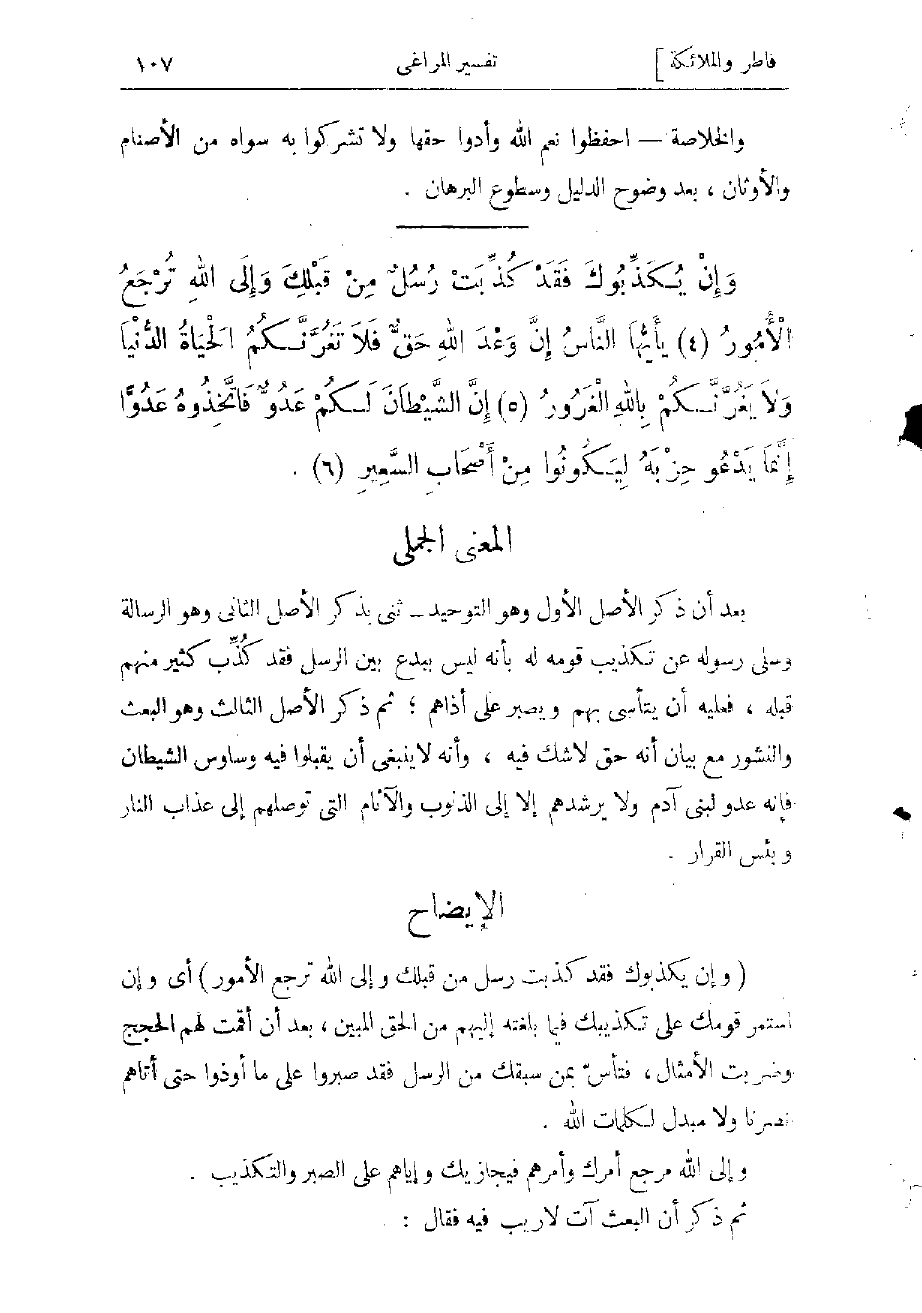 فاطر والملائكة ] تفسير المراغى ١٠٧
والخلاصة — احفظوا نعم الله وأدوا حقها ولا تشركوا به سواه من الأصنام
والأوثان ، بعد وضوح الدليل وسطوع البرهان .
وَإِنْ يُكَذِّبُوكَ فَقَدْ كُذِّبَتْ رُسُلٌ مِنْ قَبْلِكَ وَإِلَى اللهِ تُرْجَعُ
الْأُمُورُ (٤) يٰأَيُّهَا النَّاسُ إِنَّ وَعْدَ اللهِ حَقٌّ فَلَا تَغُرَّنَّكُمُ الْحَيَاةُ الدُّنْيَا
وَلَا يَغُرَّنَّكُمْ بِاللهِ الْغَرُورُ (٥) إِنَّ الشَّيْطَانَ لَكُمْ عَدُوٌّ فَاتَّخِذُوهُ عَدُوًّا
إِنَّمَا يَدْعُو حِزْبَهُ لِيَكُونُوا مِنْ أَصْحَابِ السَّعِيرِ (٦) .
المعنى الجملى
بعد أن ذكر الأصل الأول وهو التوحيد — ثنى بذكر الأصل الثانى وهو الرسالة
وسلى رسوله عن تكذيب قومه له بأنه ليس ببدع بين الرسل فقد كُذِّب كثير منهم
قبله ، فعليه أن يتأسى بهم ويصبر على أذاهم ؛ ثم ذكر الأصل الثالث وهو البعث
والنشور مع بيان أنه حق لاشك فيه ، وأنه لاينبغى أن يقبلوا فيه وساوس الشيطان
فإنه عدو لبنى آدم ولا يرشدهم إلا إلى الذنوب والآثام التى توصلهم إلى عذاب النار
وبئس القرار .
الإيضاح
( وإن يكذبوك فقد كذبت رسل من قبلك وإلى الله ترجع الأمور ) أى وإن
استمر قومك على تكذيبك فيما بلغته إليهم من الحق المبين ، بعد أن أقمت لهم الحجج
وضربت الأمثال ، فتأسّ بمن سبقك من الرسل فقد صبروا على ما أوذوا حتى أتاهم
نصرنا ولا مبدل لكلمات الله .
وإلى الله مرجع أمرك وأمرهم فيجازيك وإياهم على الصبر والتكذيب .
ثم ذكر أن البعث آت لاريب فيه فقال :